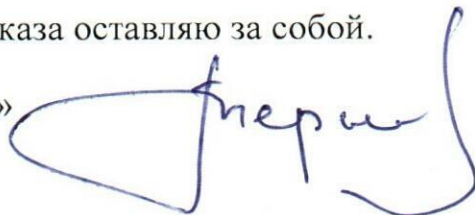 каза оставляю за собой.
»